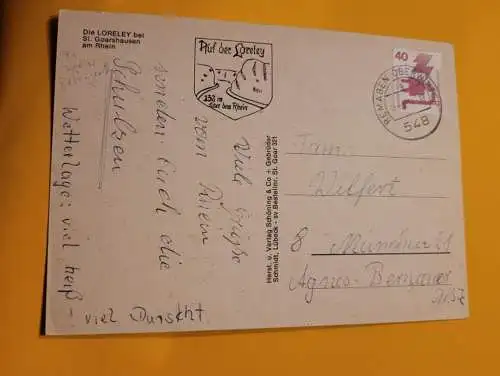 Die LORELEY bei
St. Goarshausen
am Rhein
Auf der Loreley
132 m
über dem Rhein
Viele Grüße
vom Rhein
senden Euch die
Schulzen
Wetterlage: viel heiß -
viel Durscht.
Herst. u. Verlag Schöning & Co + Gebrüder
Schmidt, Lübeck - sv Bestellnr. St. Goar 321
40
REMAGEN
548
Fam.
Welfert
8 München 21
Agnes-Bernauer